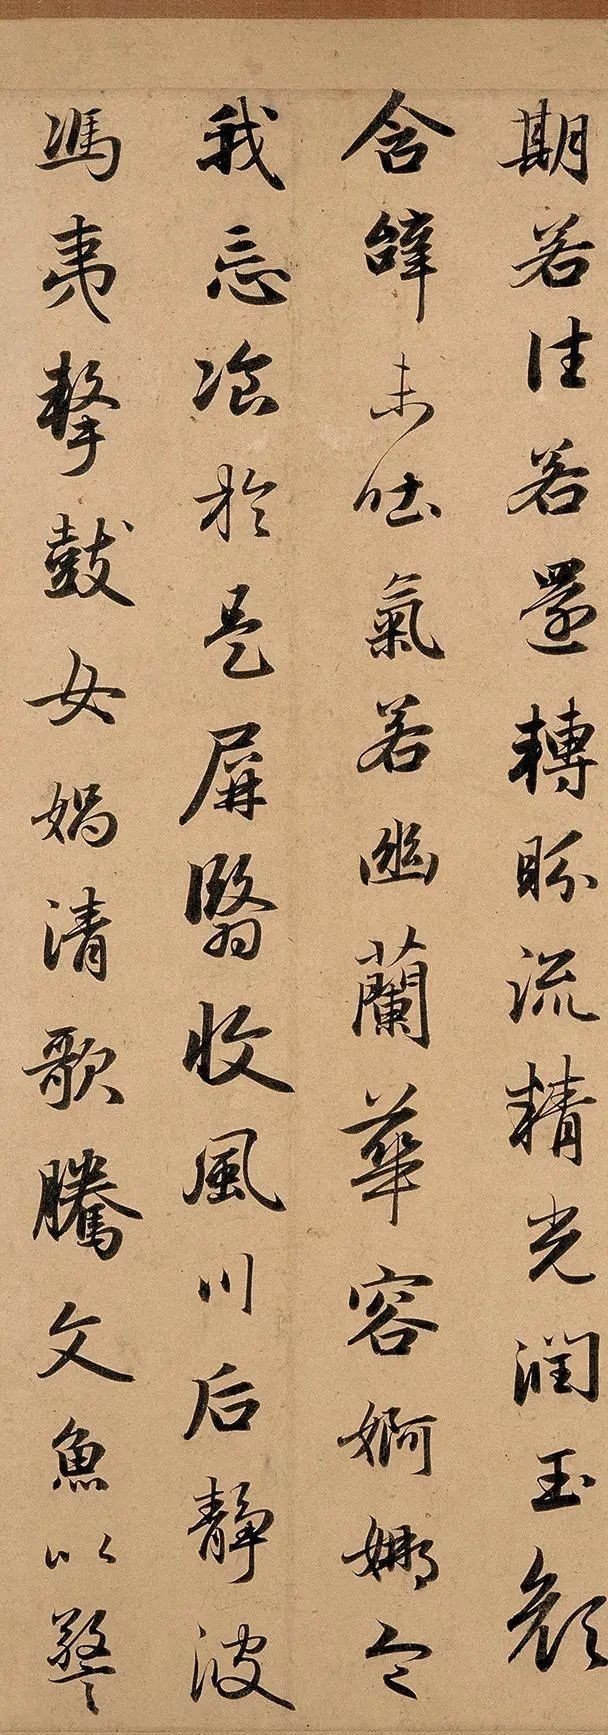 期若往若還轉盼流精光潤玉顏
含辭未吐氣若幽蘭華容婀娜令
我忘飡於是屏翳收風川后靜波
馮夷擊鼓女媧清歌騰文魚以警